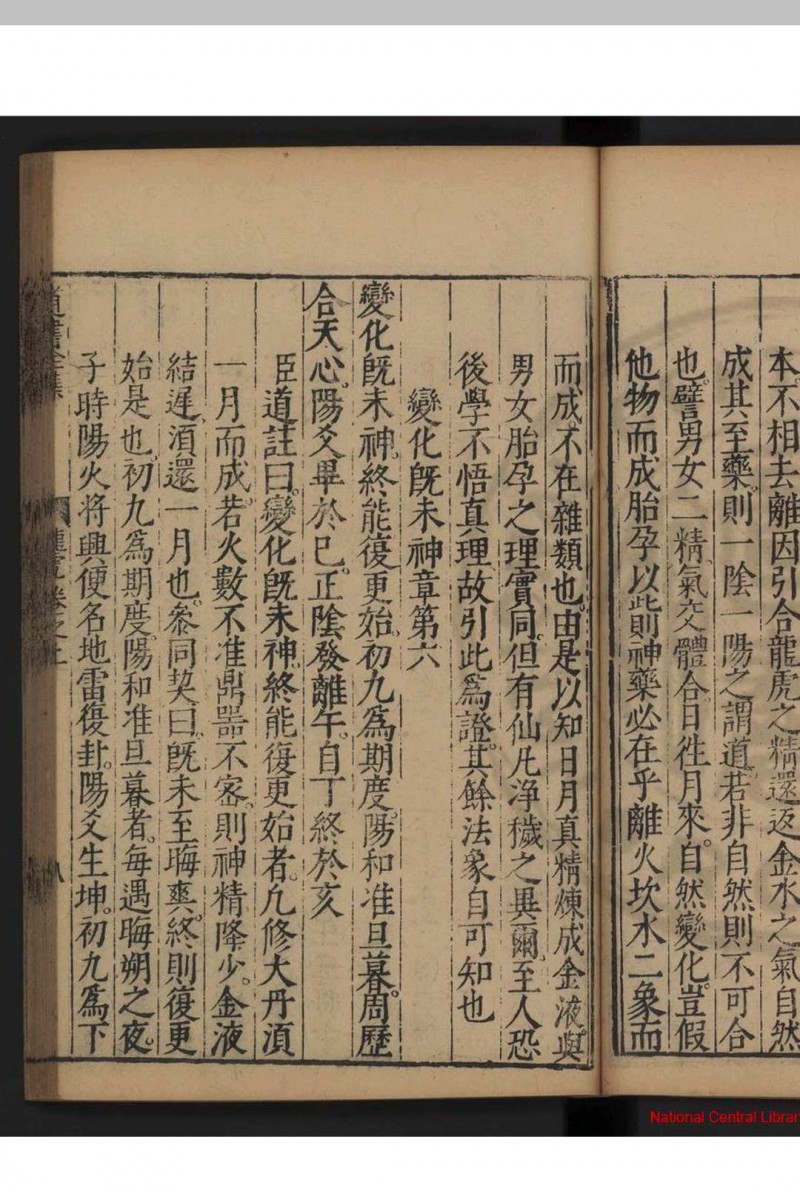 本不相去離因引合龍虎之精還返金水之氣自然
成其至藥則一陰一陽之謂道若非自然則不可合
也譬男女二精氣交體合日徃月來自然變化豈假
他物而成胎孕以此則神藥必在乎離火坎水二象而
而成不在雜類也由是以知日月真精煉成金液與
男女胎孕之理實同但有仙凡淨穢之異爾至人恐
後學不悟真理故引此爲證其餘法象自可知也
變化旣未神章第六
變化旣未神終能復更始初九爲期度陽和准旦暮周歷
合天心陽爻畢於巳正陰發離午自丁終於亥
臣道註曰變化旣未神終能復更始者凡修大丹湏
一月而成若火數不准鼎噐不宻則神精降少金液
結遲湏還一月也叅同契曰旣未至晦爽終則復更
始是也初九爲期度陽和准旦暮者每遇晦朔之夜
子時陽火將興便名地雷復卦陽爻生坤初九爲下
道書全集
卷之上
八
National Central Librar